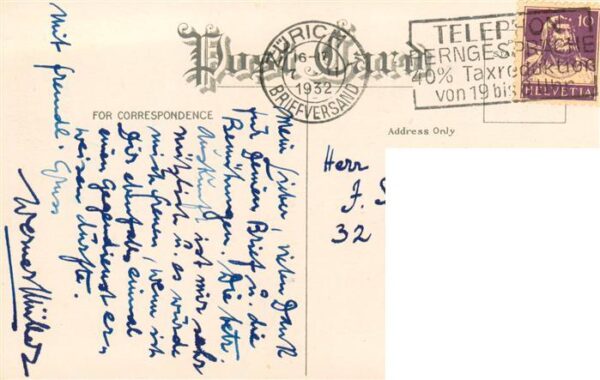 Post Card
ZÜRICH
1932
BRIEFVERSAND
TELEPHON
FERNGESPRÄCHE
40% Taxreduktion
von 19 bis 8 Uhr
10
HELVETIA
FOR CORRESPONDENCE
Address Only
Mein Lieber, vielen Dank
für Deinen Brief u. die
Bemühungen. Die betr.
Auskunft ist mir sehr
nützlich u. es würde
mich freuen, wenn ich
Dir ebenfalls einmal
einen Gegendienst er-
weisen dürfte.
Mit freundl. Gruss
Werner Müller
Herr
J. S
32